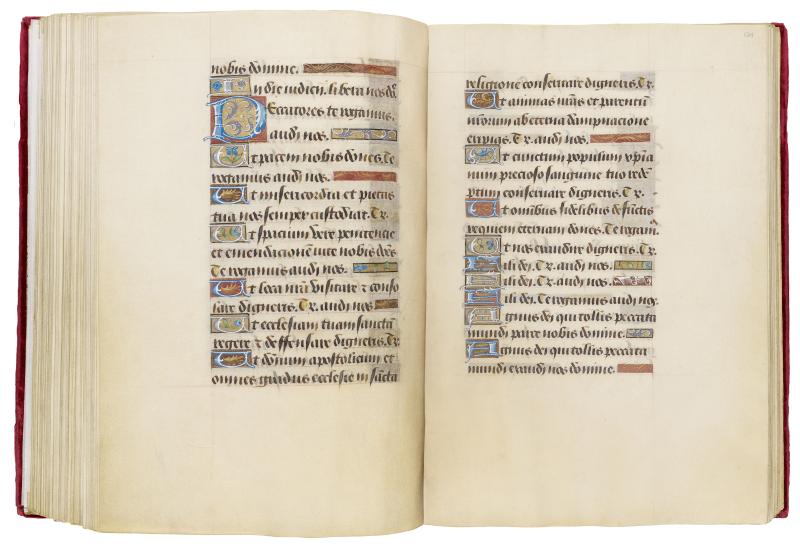 nobis domine.
In die iudicii. libera nos dñe
Peccatores te rogamus.
audi nos.
Et pacem nobis dones. Te
rogamus audi nos.
Et misericordia et pietas
tua nos semper custodiat. Tr.
Et spacium vere penitencie
et emendacionem vite nobis dões
Te rogamus audi nos.
Et loca nrã visitare z conso
lare digneris. Tr. audi nos
Et ecclesiam tuam sanctã
regere z deffensare digneris. Tr.
Et dõnum apostolicum et
omnes gradus ecclesie in sãcta
religione conseruare digneris. Tr.
Et animas nr̃as et parentũ
nr̃orum ab eterna dampnacione
eripias. Tr. audi nos.
Et cunctum populum xp̃ia
num precioso sanguine tuo redẽ
ptum conseruare digneris. Tr.
Et omĩbus fidelibus defũctis
requiem eternam dones. Te rogam9.
Et nos exaudire digneris. Tr.
Fili dei. Tr. audi nos.
Fili dei. Tr. audi nos.
Fili dei. Te rogamus audi nos.
Agnus dei qui tollis peccata
mundi parce nobis domine.
Agnus dei qui tollis peccata
mundi exaudi nos domine.